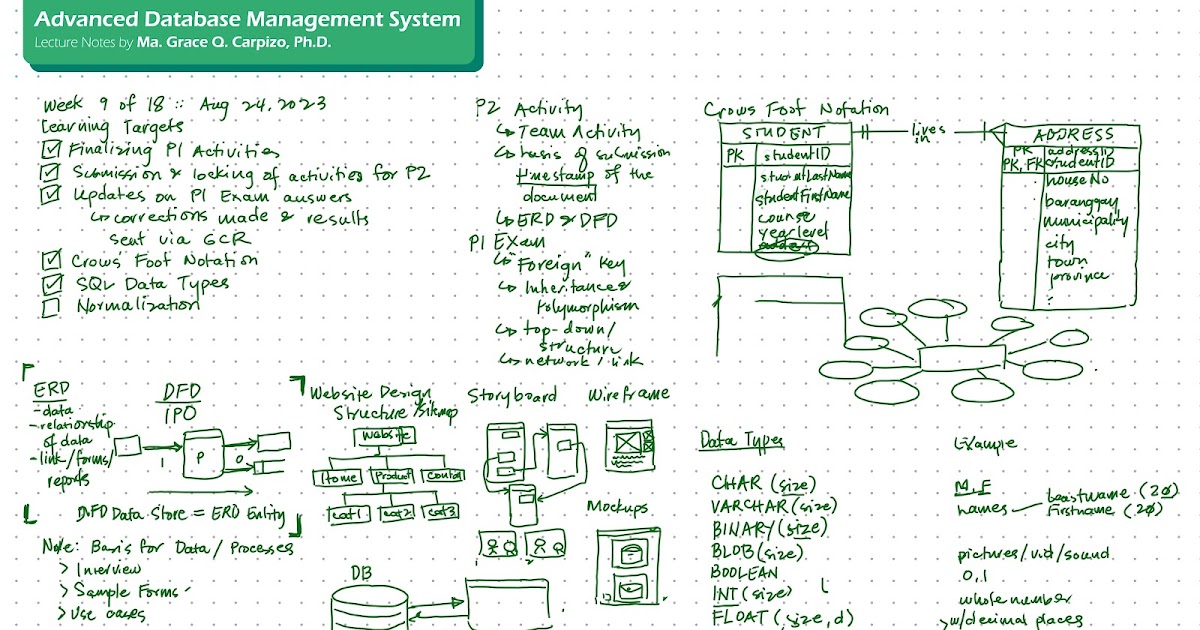 Advanced Database Management System
Lecture Notes by Ma. Grace Q. Carpizo, Ph.D.
Week 9 of 18 :: Aug 24, 2023
Learning Targets
Finalizing P1 Activities
Submission & locking of activities for P2
Updates on P1 Exam answers
↳ corrections made & results
sent via GCR
Crows' Foot Notation
SQL Data Types
Normalization
P2 Activity
↳ Team Activity
↳ basis of submission
timestamp of the
document
↳ ERD & DFD
P1 Exam
↳ "Foreign" key
↳ Inheritance &
Polymorphism
↳ top-down/
structure
↳ network / link
Crows Foot Notation
STUDENT
PK studentID
studentLastName
studentFirstName
course
yearlevel
address
lives
in
ADDRESS
PK addressID
PK, FK studentID
houseNo
baranggay
municipality
city
town
province
:
ERD
- data
- relationship
of data
- link/forms/
reports
DFD
IPO
I
P
O
DFD Data Store = ERD Entity
Note: Basis for Data / Processes
> Interview
> Sample Forms
> Use cases
Website Design
Structure /Sitemap
Website
Home
Product
Contact
cat1
cat2
cat3
DB
Storyboard
1
2
Wireframe
Mockups
Data Types
CHAR (size)
VARCHAR (size)
BINARY (size)
BLOB (size)
BOOLEAN
INT (size)
FLOAT (size, d)
Example
M, F
names
Lastname (20)
Firstname (20)
pictures/vid/sound
0,1
whole number
> w/decimal places